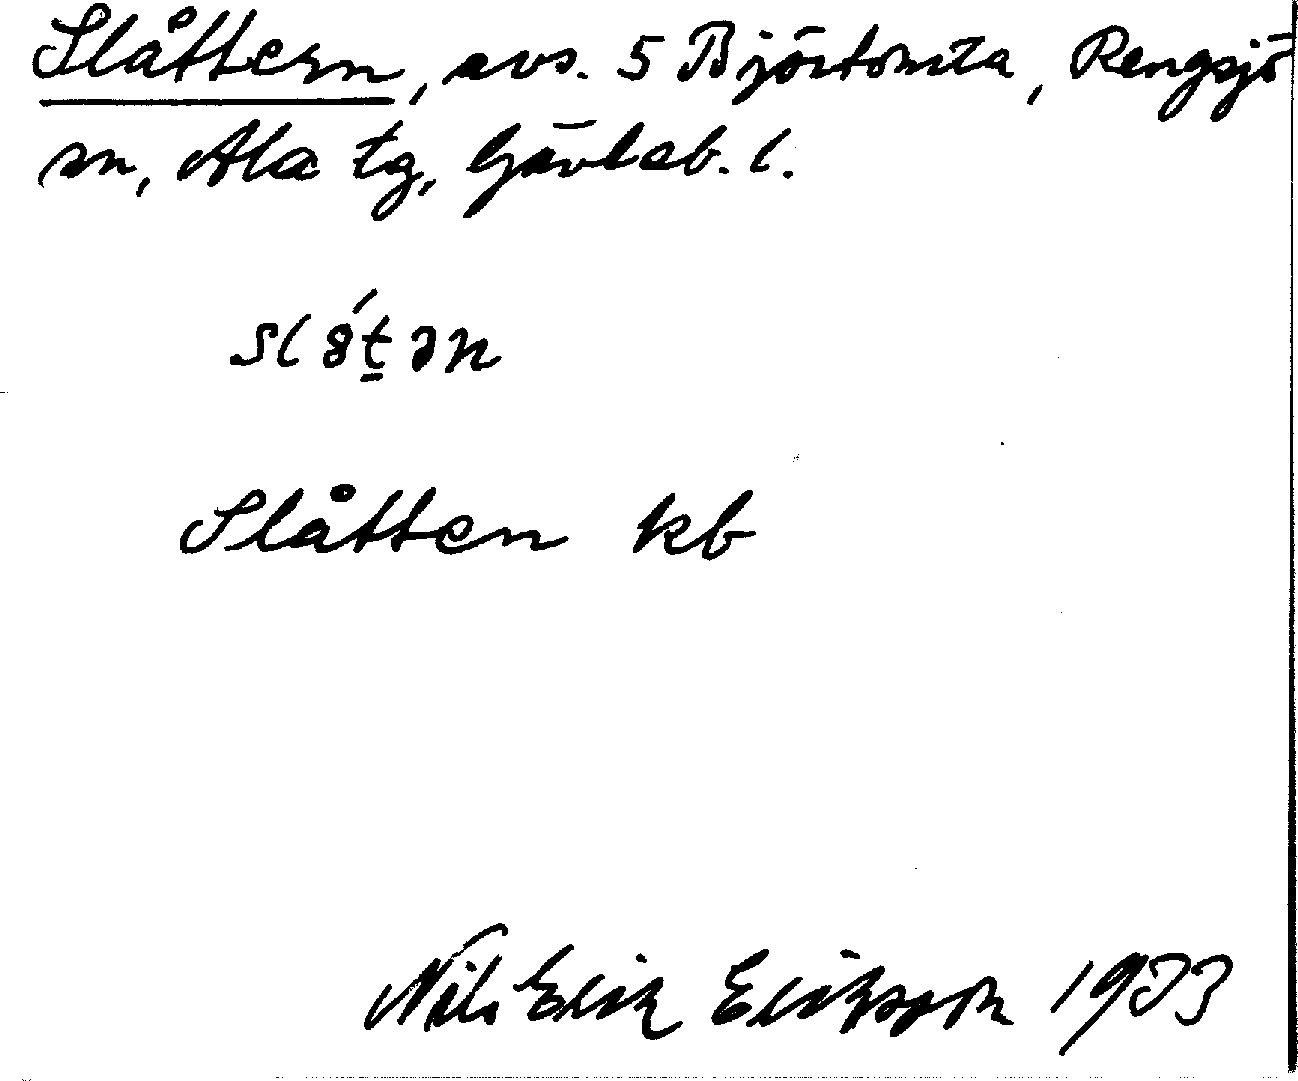 Slåttern, avs. 5 Björtomta, Rengsjö
sn, Ala tg, Gävleb. l.
Slåtten kb
Nils Erik Eriksson 1933